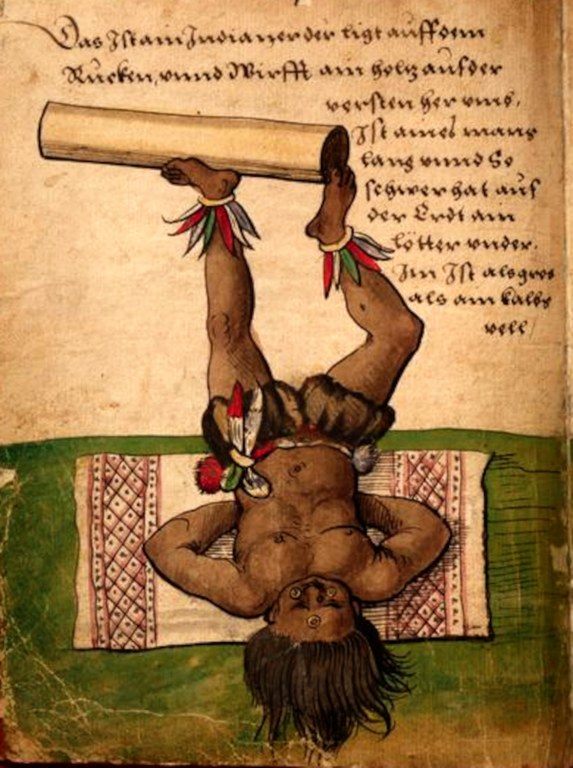 Das Ist ain Indianer der ligt auff dem
Rucken, vnnd Wirfft ain holtz auf der
versten her vmb,
Ist aines mans
lang vnnd So
schwer hat auf
der Erdt ain
lötter vnder.
Im Ist als gros
als ain kalbs
vell/